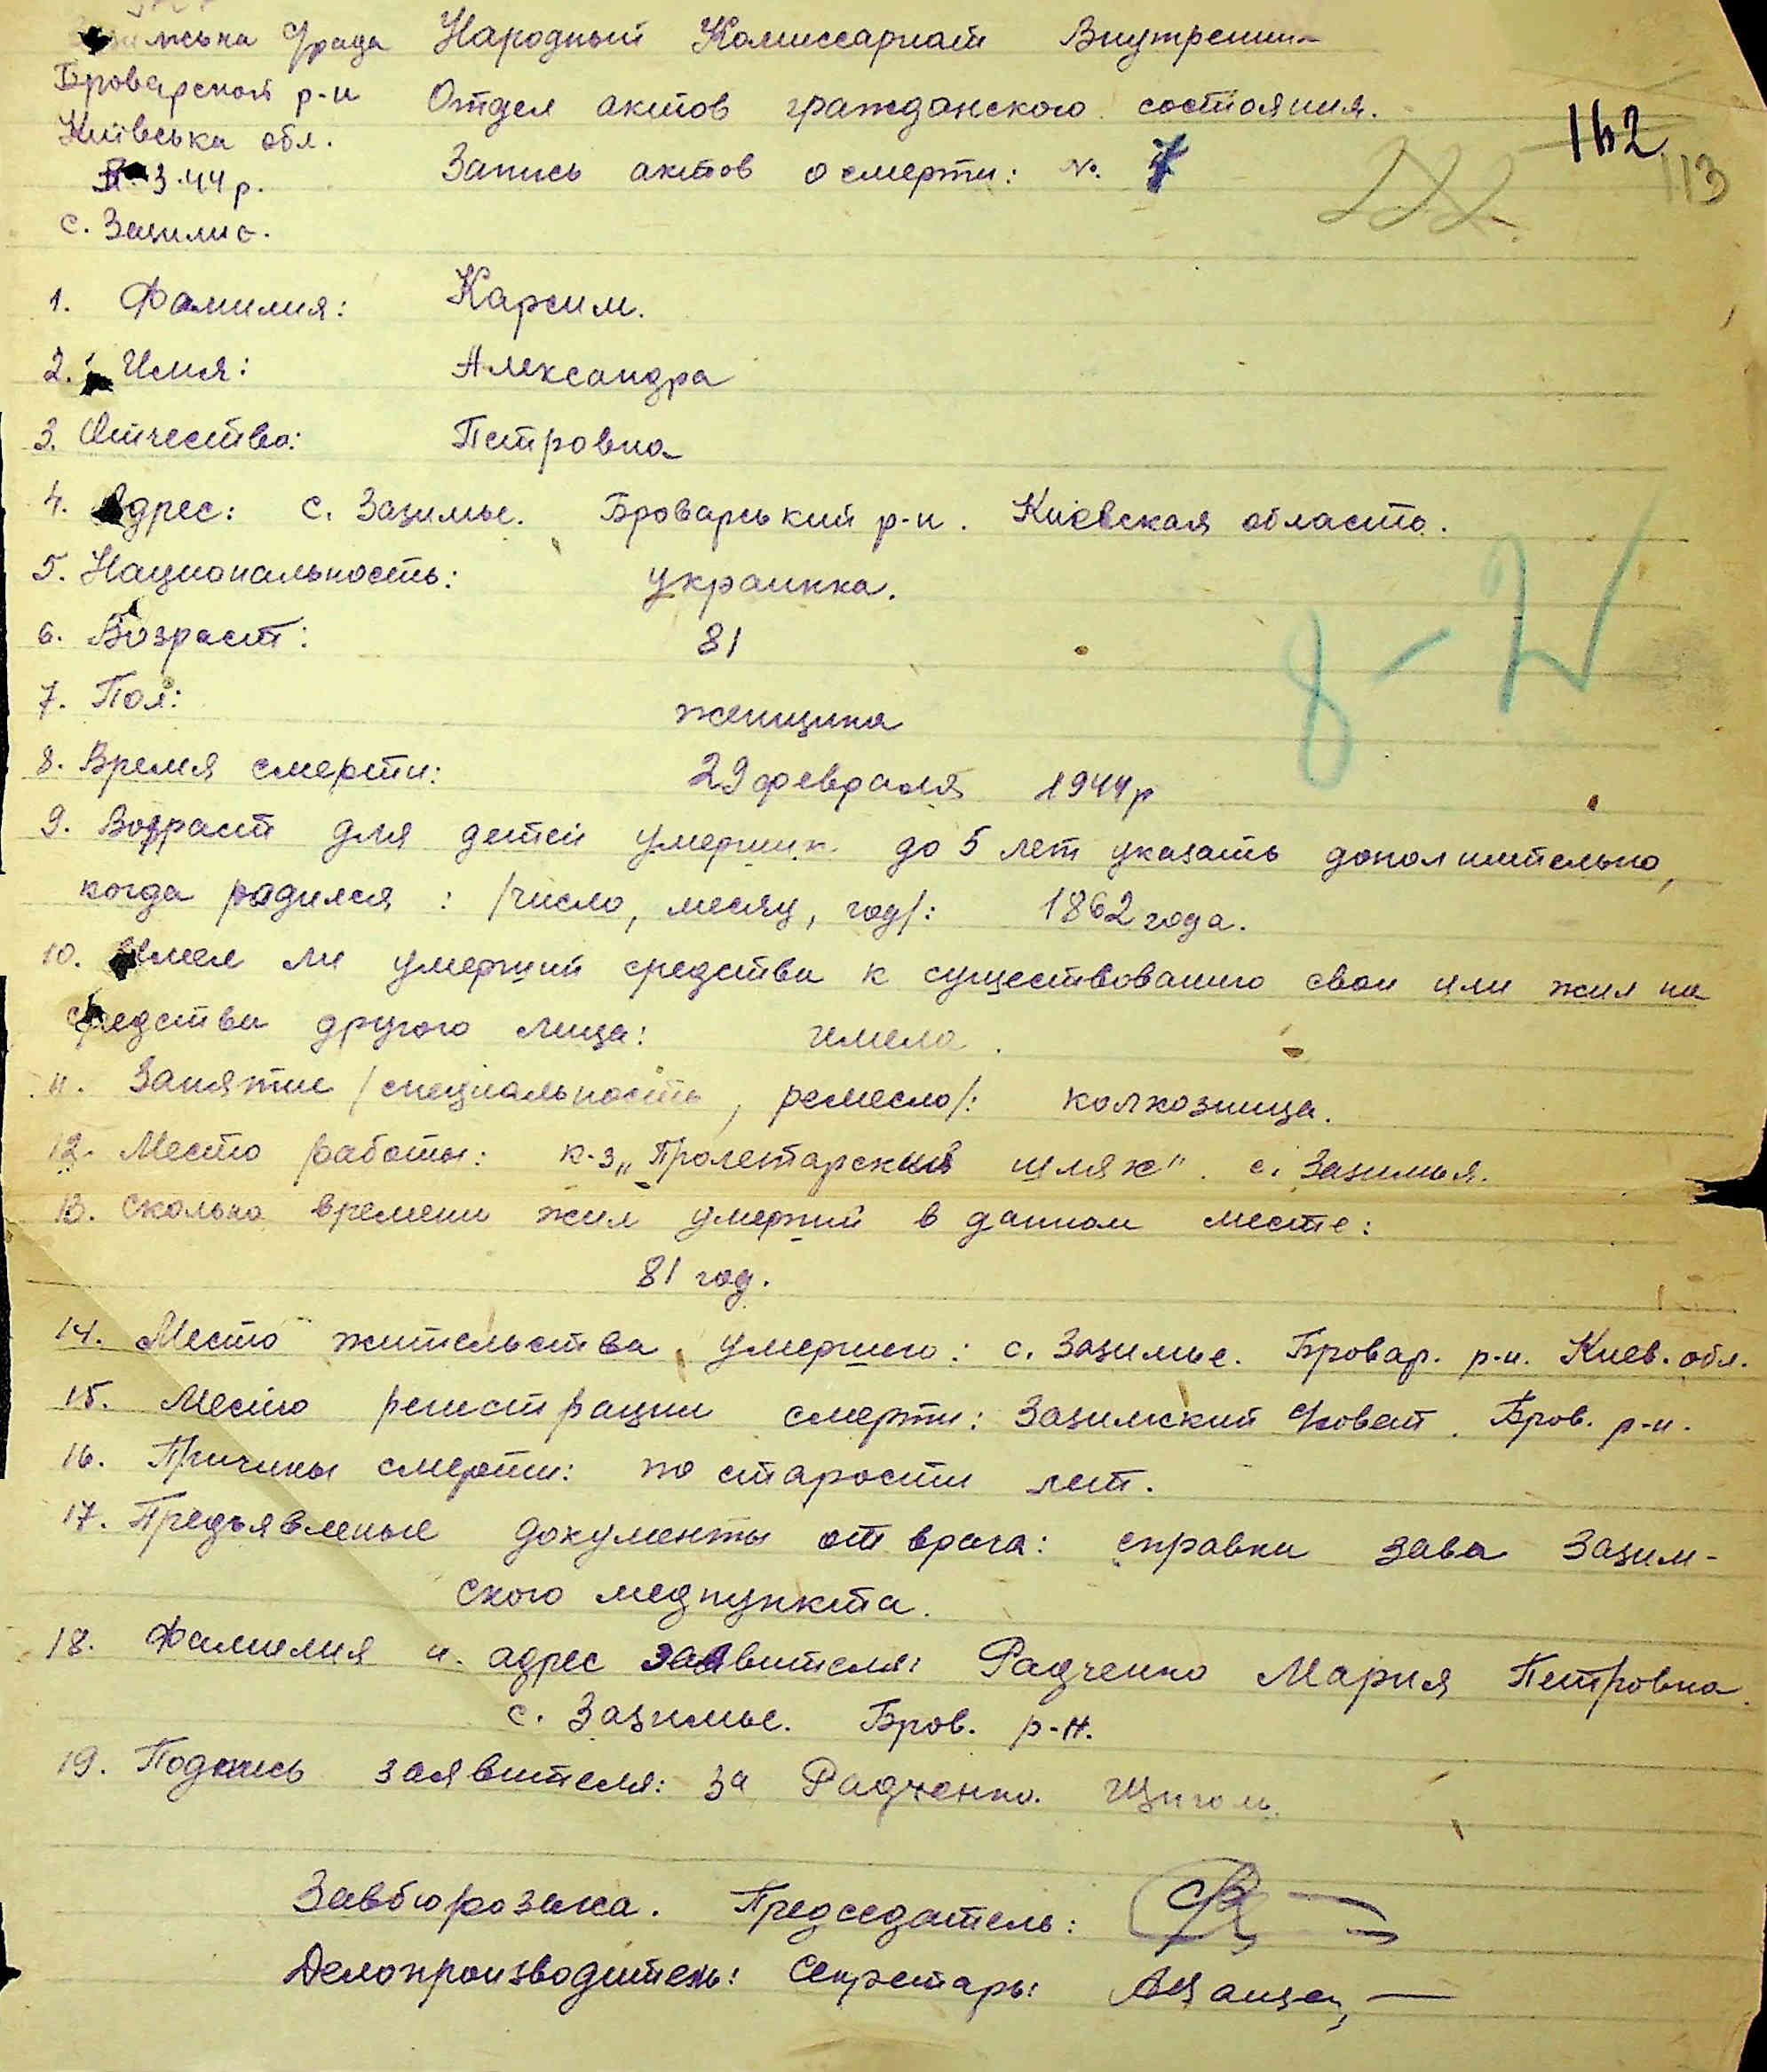 Народный Комиссариат Внутрении
Броварской р-н
Отдел актов гражданского состояния.
Київська обл.
3.44 р.
Запись актов о смерти: №. 7
162
113
с. Зазимье.
1. Фамилия: Карсим.
2. Имя: Александра
3. Отчество: Петровна
4. Адрес: с. Зазимье. Броварський р-н. Киевская область.
5. Национальность: украинка.
6. Возраст: 81
7. Пол: женщина
8. Время смерти: 29 февраля 1944 р
9. Возраст для детей умерших до 5 лет указать дополнительно,
когда родился : /число, месяц, год/: 1862 года.
10. Имел ли умерший средства к существованию свои или жил на
средства другого лица: имела.
11. Занятие /специальность, ремесло/: колхозница.
12. Место работы: к-з „Пролетарский шлях". с. Зазимья.
13. Сколько времени жил умерший в данном месте:
81 год.
14. Место жительства умершего: с. Зазимье. Бровар. р-н. Киев. обл.
15. Место регистрации смерти: Зазимский Бров. р-н.
16. Причины смерти: по старости лет.
17. Предъявленые документы от врача: справки зава Зазим-
ского медпункта.
18. Фамилия и. адрес заявителя: Радченко Мария Петровна.
с. Зазимье. Бров. р-н.
19. Подпись заявителя: За Радченко.
Завбюрозагса. Председатель:
Делопроизводитель: Секретарь: